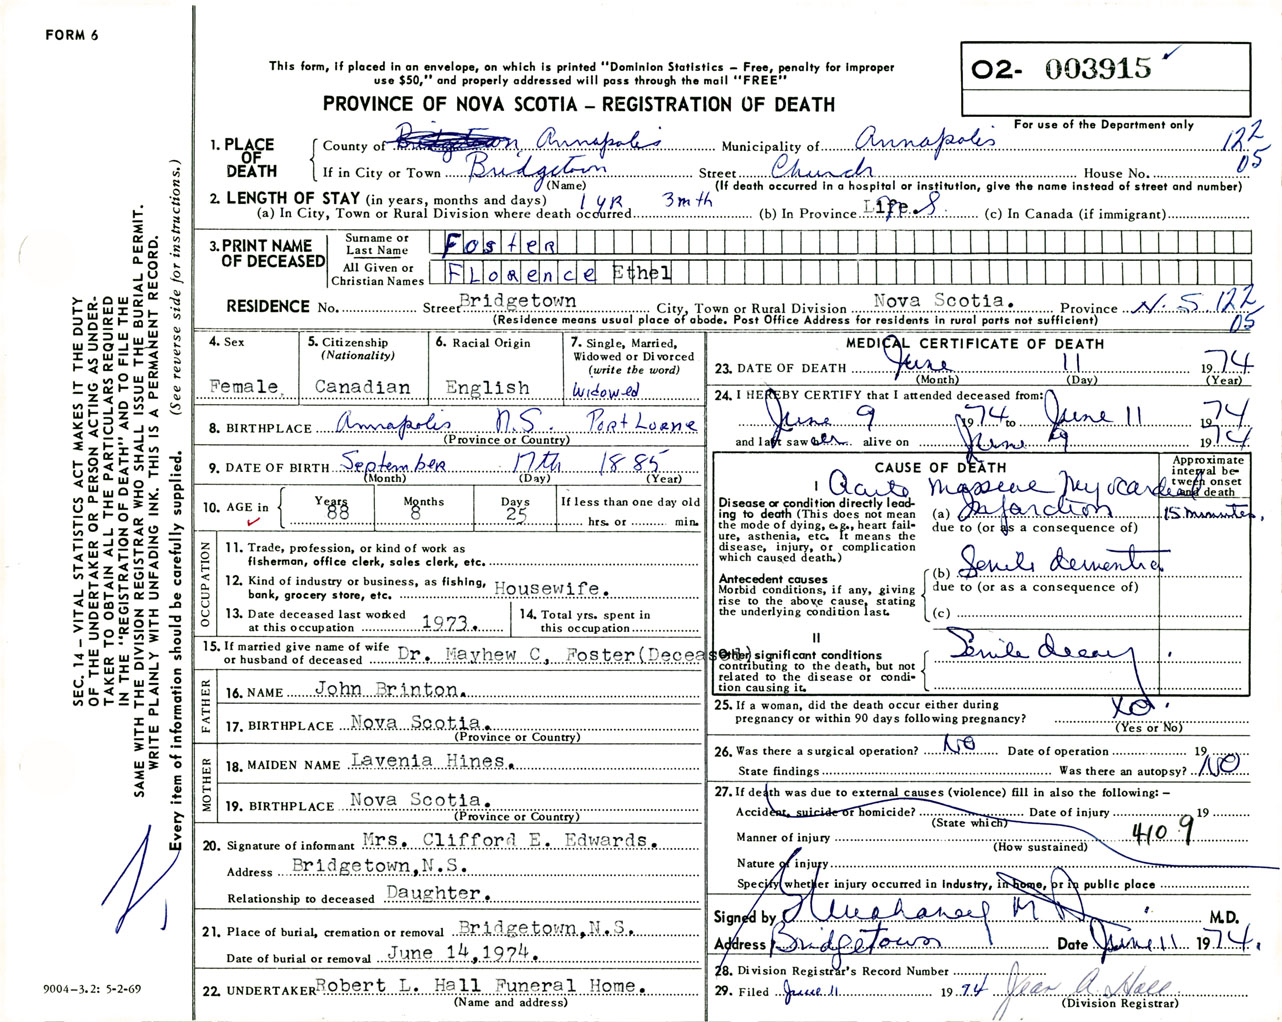 FORM 6
This form, if placed in an envelope, on which is printed "Dominion Statistics – Free, penalty for improper
use $50," and properly addressed will pass through the mail "FREE"
O2- 003915
PROVINCE OF NOVA SCOTIA – REGISTRATION OF DEATH
For use of the Department only
1. PLACE OF DEATH
County of Bridgetown Annapolis Municipality of Annapolis 122
If in City or Town Bridgetown Street Church House No. 05
(Name) (If death occurred in a hospital or institution, give the name instead of street and number)
2. LENGTH OF STAY (in years, months and days)
(a) In City, Town or Rural Division where death occurred 1 YR 3 mth (b) In Province Life (c) In Canada (if immigrant)
3. PRINT NAME OF DECEASED
Surname or Last Name Foster
All Given or Christian Names Florence Ethel
RESIDENCE No. Street Bridgetown City, Town or Rural Division Nova Scotia. Province N.S. 122
(Residence means usual place of abode. Post Office Address for residents in rural parts not sufficient) 05
4. Sex
Female.
5. Citizenship
(Nationality)
Canadian
6. Racial Origin
English
7. Single, Married,
Widowed or Divorced
(write the word)
Widowed
8. BIRTHPLACE Annapolis N.S. Port Lorne
(Province or Country)
9. DATE OF BIRTH September 17th 1885
(Month) (Day) (Year)
10. AGE in Years 88 Months 8 Days 25
If less than one day old
hrs. or min.
OCCUPATION
11. Trade, profession, or kind of work as
fisherman, office clerk, sales clerk, etc.
12. Kind of industry or business, as fishing,
bank, grocery store, etc. Housewife.
13. Date deceased last worked
at this occupation 1973.
14. Total yrs. spent in
this occupation
15. If married give name of wife
or husband of deceased Dr. Mayhew C, Foster(Deceased)
FATHER
16. NAME John Brinton.
17. BIRTHPLACE Nova Scotia.
(Province or Country)
MOTHER
18. MAIDEN NAME Lavenia Hines.
19. BIRTHPLACE Nova Scotia.
(Province or Country)
20. Signature of informant Mrs. Clifford E. Edwards.
Address Bridgetown,N.S.
Relationship to deceased Daughter.
21. Place of burial, cremation or removal Bridgetown,N.S.
Date of burial or removal June 14,1974.
22. UNDERTAKER Robert L. Hall Funeral Home.
(Name and address)
MEDICAL CERTIFICATE OF DEATH
23. DATE OF DEATH June 11 1974
(Month) (Day) (Year)
24. I HEREBY CERTIFY that I attended deceased from:
June 9 1974 to June 11 1974
and last saw her alive on June 9 1974
CAUSE OF DEATH
Approximate
interval be-
tween onset
and death
I
Disease or condition directly lead-
ing to death (This does not mean
the mode of dying, e.g., heart fail-
ure, asthenia, etc. It means the
disease, injury, or complication
which caused death.)
Acute Massive Myocardial
(a) Infarction 15 minutes.
due to (or as a consequence of)
Antecedent causes
Morbid conditions, if any, giving
rise to the above cause, stating
the underlying condition last.
(b) Senile dementia
due to (or as a consequence of)
(c)
II
Other significant conditions
contributing to the death, but not
related to the disease or condi-
tion causing it.
Senile decay
25. If a woman, did the death occur either during
pregnancy or within 90 days following pregnancy? No.
(Yes or No)
26. Was there a surgical operation? No Date of operation 19
State findings Was there an autopsy? NO
27. If death was due to external causes (violence) fill in also the following: –
Accident, suicide or homicide? Date of injury 19
(State which)
Manner of injury 410 9
(How sustained)
Nature of injury
Specify whether injury occurred in Industry, in home, or in public place
Signed by M.D.
Address Bridgetown Date June 11 1974.
28. Division Registrar's Record Number
29. Filed June 11 1974 Jean A. Hall
(Division Registrar)
SEC. 14 – VITAL STATISTICS ACT MAKES IT THE DUTY
OF THE UNDERTAKER OR PERSON ACTING AS UNDER-
TAKER TO OBTAIN ALL THE PARTICULARS REQUIRED
IN THE "REGISTRATION OF DEATH" AND TO FILE THE
SAME WITH THE DIVISION REGISTRAR WHO SHALL ISSUE THE BURIAL PERMIT.
WRITE PLAINLY WITH UNFADING INK. THIS IS A PERMANENT RECORD.
Every item of information should be carefully supplied. (See reverse side for instructions.)
9004-3.2: 5-2-69